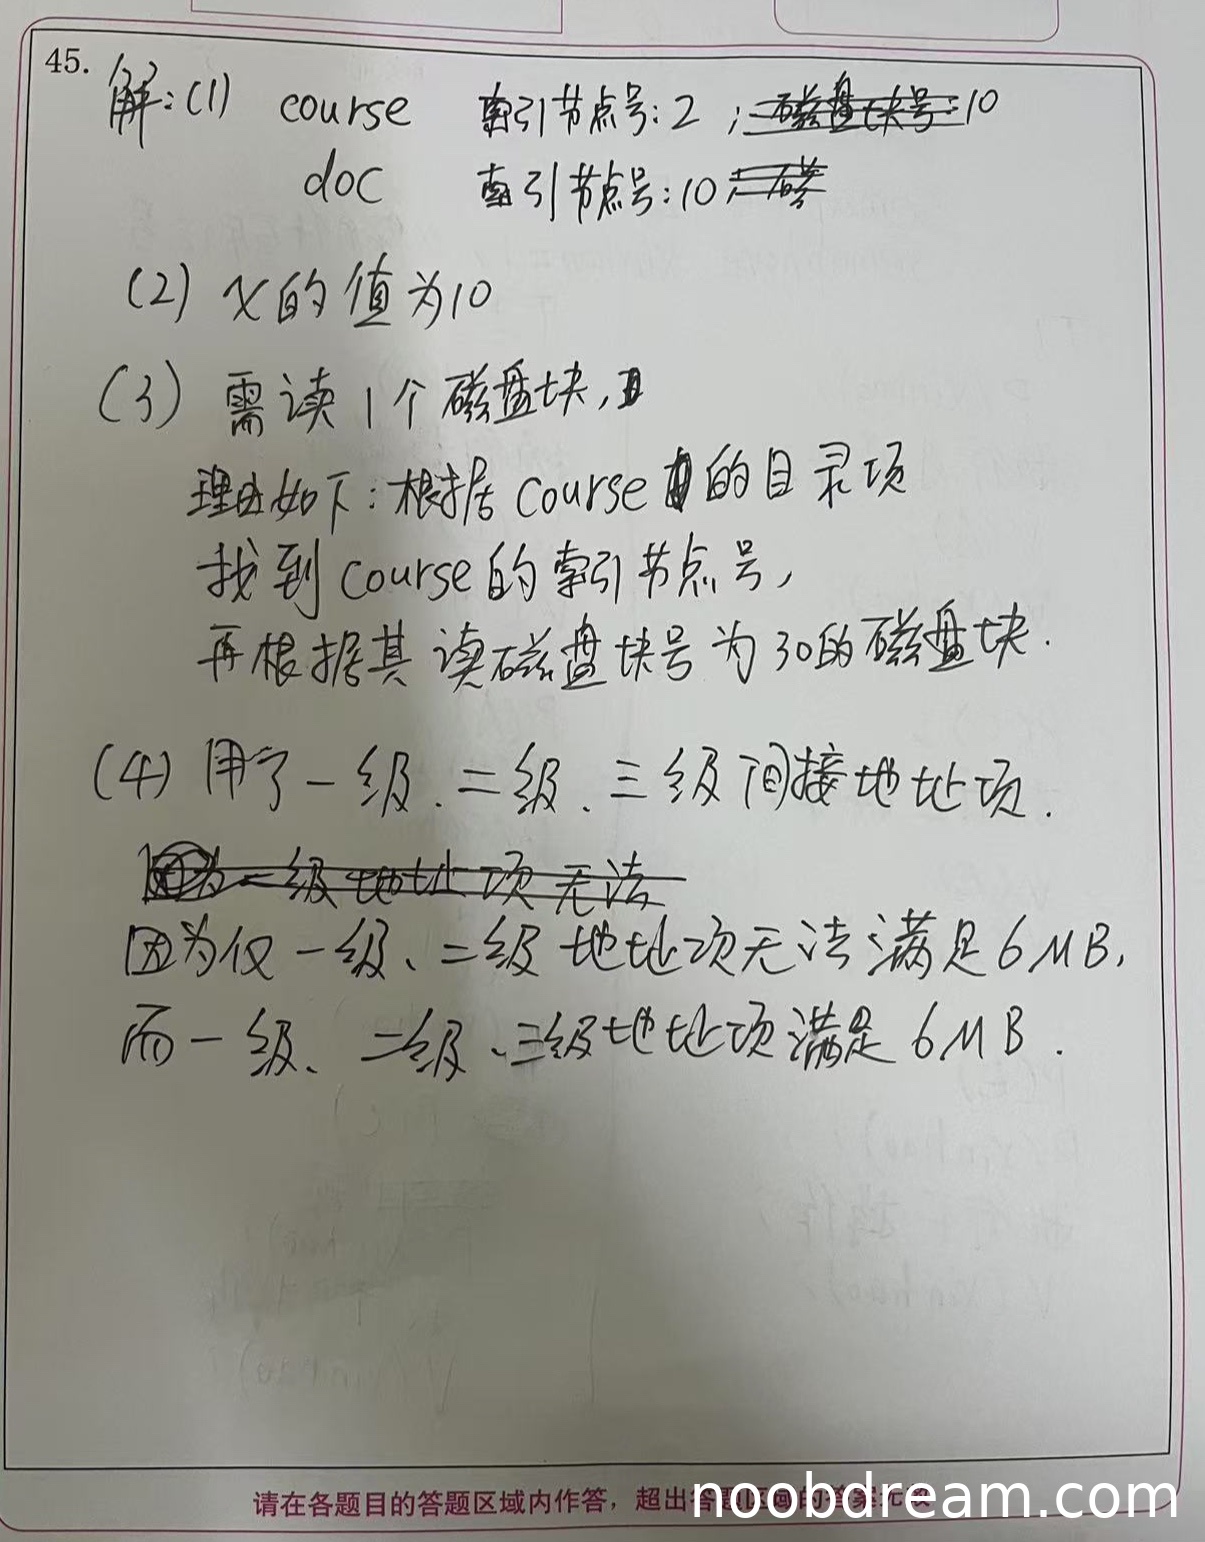 45.
解:(1) course 索引节点号:2 ; 磁盘块号:10
doc 索引节点号:10
(2) x的值为10
(3) 需读1个磁盘块,
理由如下:根据course的目录项
找到course的索引节点号,
再根据其读磁盘块号为30的磁盘块.
(4) 用了一级、二级、三级间接地址项.
因为一级地址项无法
因为仅一级、二级地址项无法满足6MB,
而一级、二级、三级地址项满足6MB.
请在各题目的答题区域内作答,超出答题区域的答案无效
noobdream.com